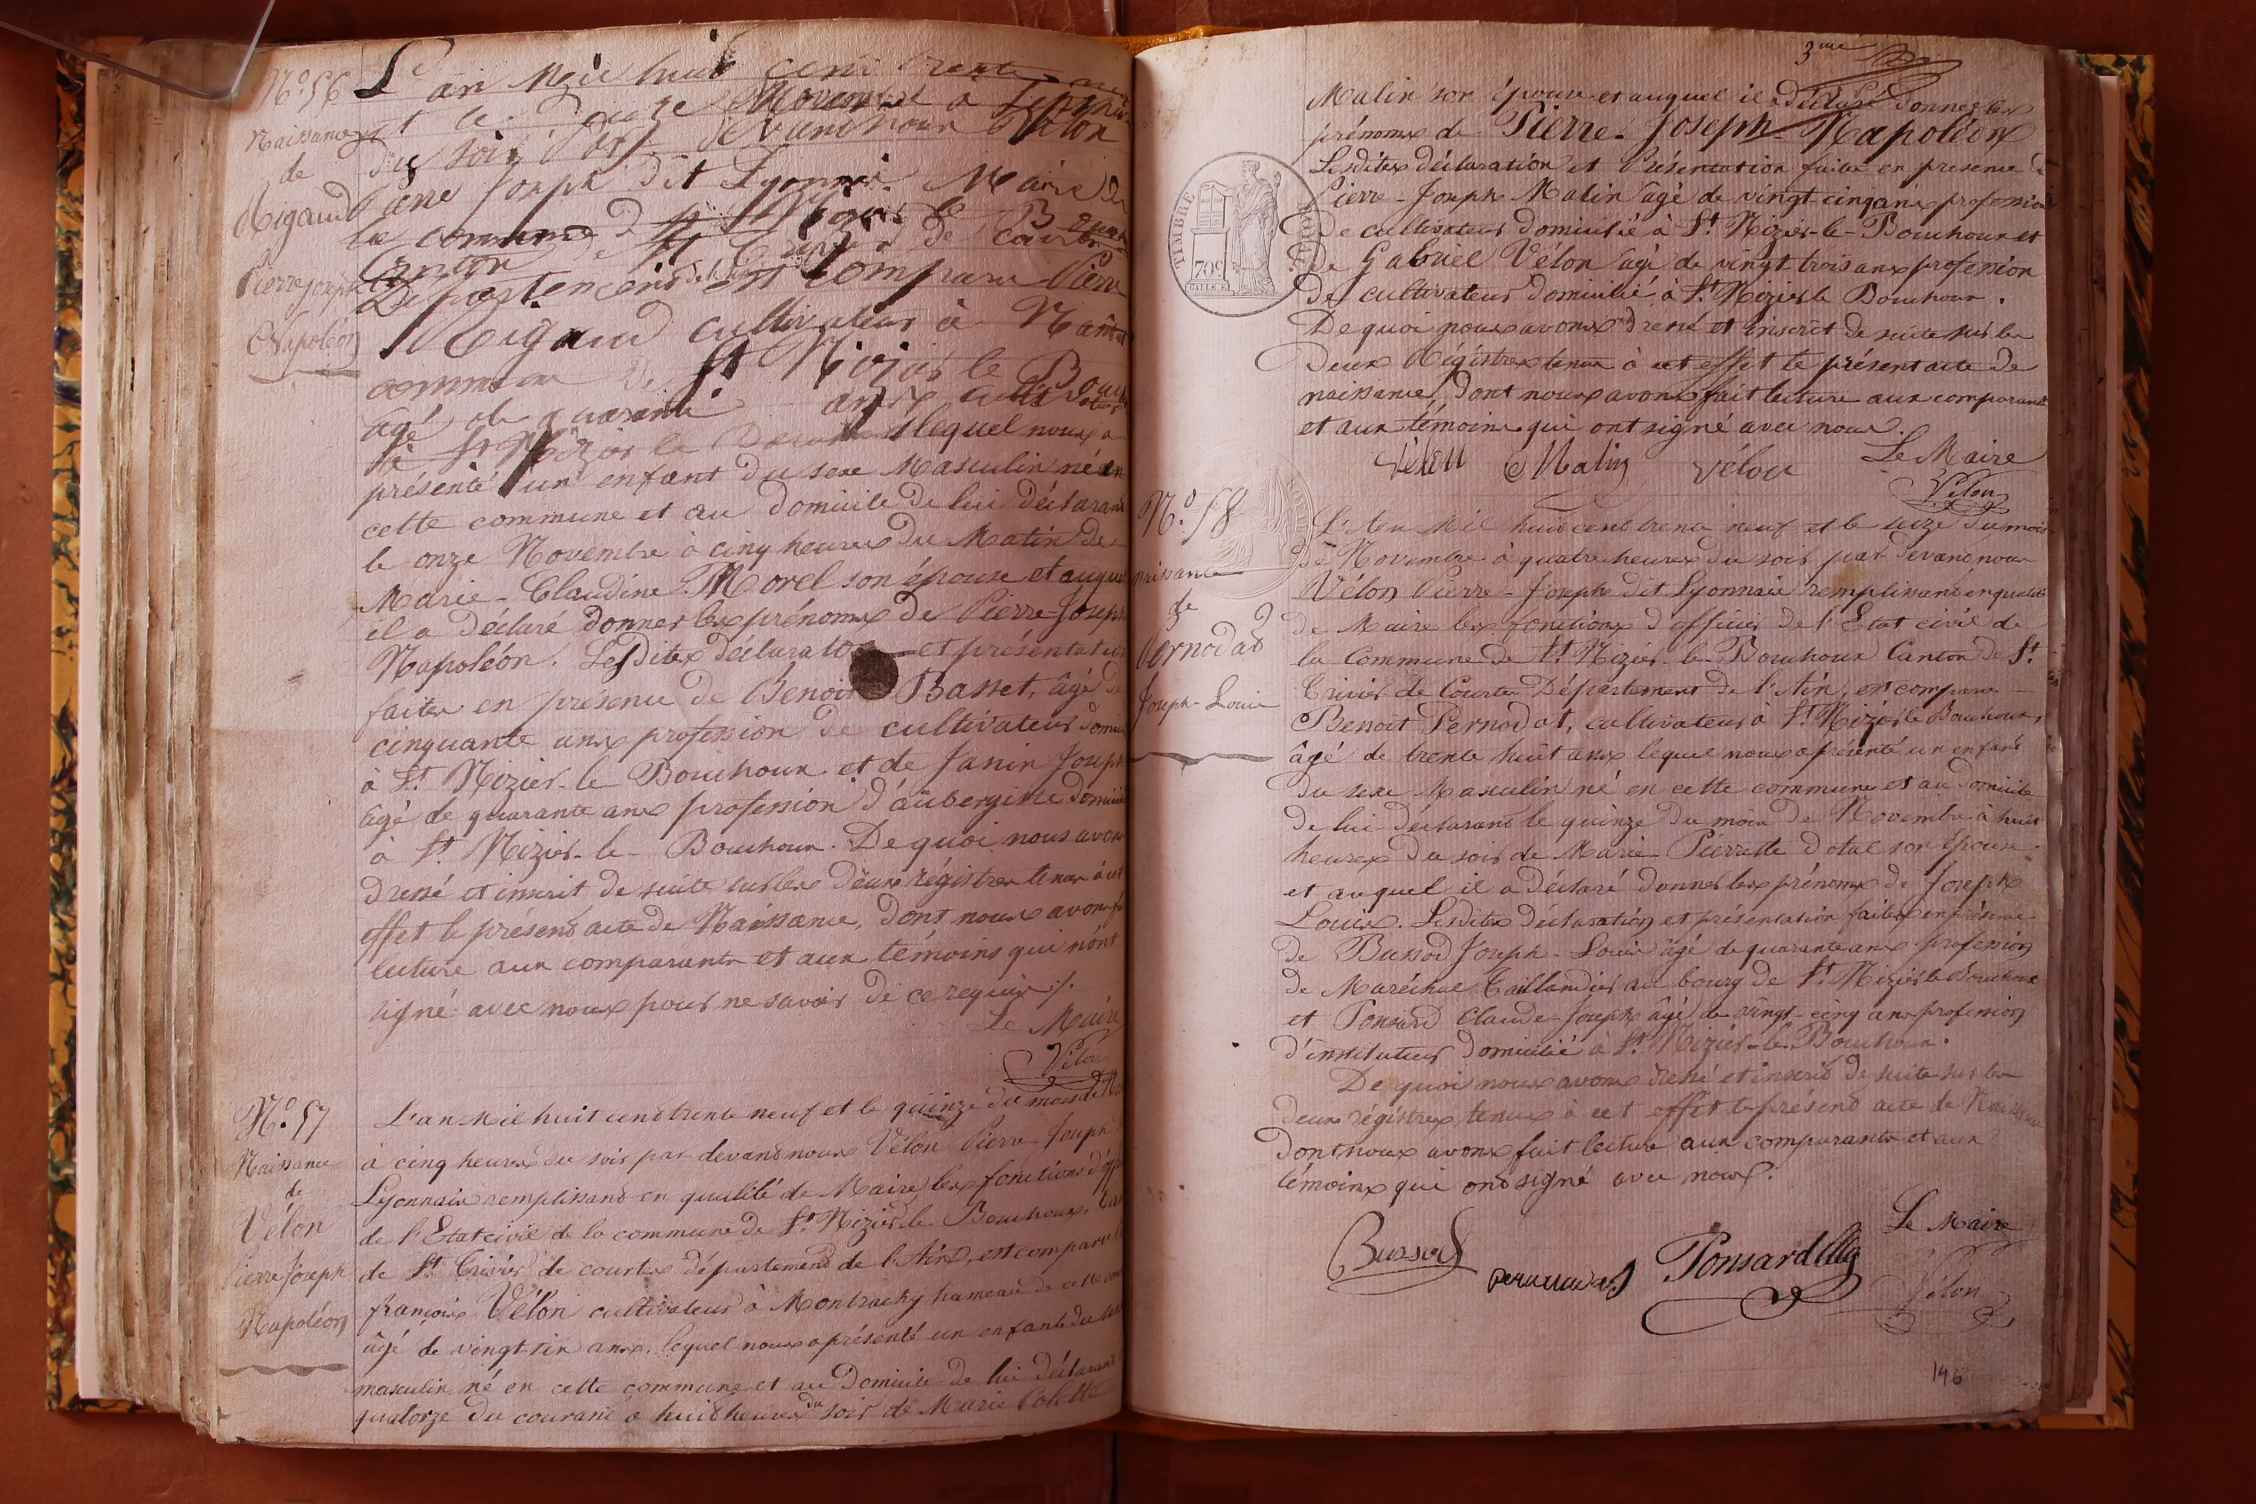 N.° 56
Naissance
de
Rigaud
Pierre Joseph
Napoléon
L'an Mille huit cent trente neuf
et le douze Novembre à
du soir par devant nous Vélon
Pierre Joseph dit Lyonnais Maire de
la commune de St Nizier le Bouchoux
Canton de St Trivier de Courtes
Département de l'Ain est comparu Pierre
Rigaud cultivateur à
commune de St Nizier le Bouchoux
âgé de quarante ans
à St Nizier le Bouchoux lequel nous a
présenté un enfant du sexe Masculin né en
cette commune et au domicile de lui déclarant
le onze Novembre à cinq heures du Matin de
Marie-Claudine Morel son épouse et auquel
il a déclaré donner les prénoms de Pierre-Joseph
Napoléon. Lesdites déclaration et présentation
faites en présence de Benoit Basset, âgé de
cinquante ans profession de cultivateur domicilié
à St Nizier-le-Bouchoux et de Janin Joseph
âgé de quarante ans profession d'aubergiste domicilié
à St Nizier-le-Bouchoux. De quoi nous avons
dressé et inscrit de suite sur les deux régistres tenus à cet
effet le présent acte de Naissance, dont nous avons fait
lecture aux comparants et aux témoins qui n'ont
signé avec nous pour ne savoir de ce requis ./.
Le Maire
Vélon
N.° 57
Naissance
de
Vélon
Pierre Joseph
Napoléon
L'an Mil huit cent trente neuf et le quinze du mois de
à cinq heures du soir par devant nous Vélon Pierre-Joseph
Lyonnais remplissant en qualité de Maire les fonctions d'
de l'Etat civil de la commune de St Nizier le Bouchoux,
de St Trivier de courtes département de l'Ain, est comparu
françois Vélon cultivateur à Montrachy hameau de cette
âgé de vingt-six ans, lequel nous a présenté un enfant du sexe
masculin né en cette commune et au domicile de lui déclarant
quatorze du courant à huit heures du soir de Marie Colette
3me
Malin son épouse et auquel il a déclaré donner les
prénoms de Pierre-Joseph-Napoléon
Lesdites déclaration et Présentation faites en présence de
Pierre-Joseph Malin âgé de vingt cinq ans profession
de cultivateur domicilié à St Nizier-le-Bouchoux et
de Gabriel Vélon âgé de vingt trois ans profession
de cultivateur domicilié à St Nizier le Bouchoux.
De quoi nous avons dressé et inscrit de suite sur les
deux Régistres tenus à cet effet le présent acte de
naissance, dont nous avons fait lecture aux comparants
et aux témoins qui ont signé avec nous.
vélon Malin vélon Le Maire
Vélon
TIMBRE ROYAL
70c
N.° 58
naissance
de
Pernodat
Joseph-Louis
L'An Mil huit cent trente neuf et le seize du mois
de Novembre à quatre heures du soir par devant nous
Vélon Pierre-Joseph dit Lyonnais remplissant en qualité
de Maire les fonctions d'officier de l'Etat civil de
la Commune de St Nizier-le-Bouchoux Canton de St
Trivier de Courtes Département de l'Ain, est comparu
Benoit Pernodat, cultivateur à St Nizier le Bouchoux,
âgé de trente huit ans lequel nous a présenté un enfant
du sexe Masculin né en cette commune et au domicile
de lui déclarant le quinze du mois de Novembre à huit
heures du soir de Marie Pierrette Dotal son épouse
et auquel il a déclaré donner les prénoms de Joseph
Louis. Lesdites déclaration et présentation faites en présence
de Bussod Joseph-Louis âgé de quarante ans profession
de Maréchal Taillandier au bourg de St Nizier le Bouchoux
et Ponsard Claude-Joseph âgé de vingt-cinq ans profession
d'instituteur domicilié à St Nizier-le-Bouchoux.
De quoi nous avons dressé et inscrit de suite sur les
deux régistres tenus à cet effet le présent acte de Naissance
dont nous avons fait lecture aux comparants et aux
témoins qui ont signé avec nous.
Le Maire
Bussod pernaudad Ponsard
Vélon
146